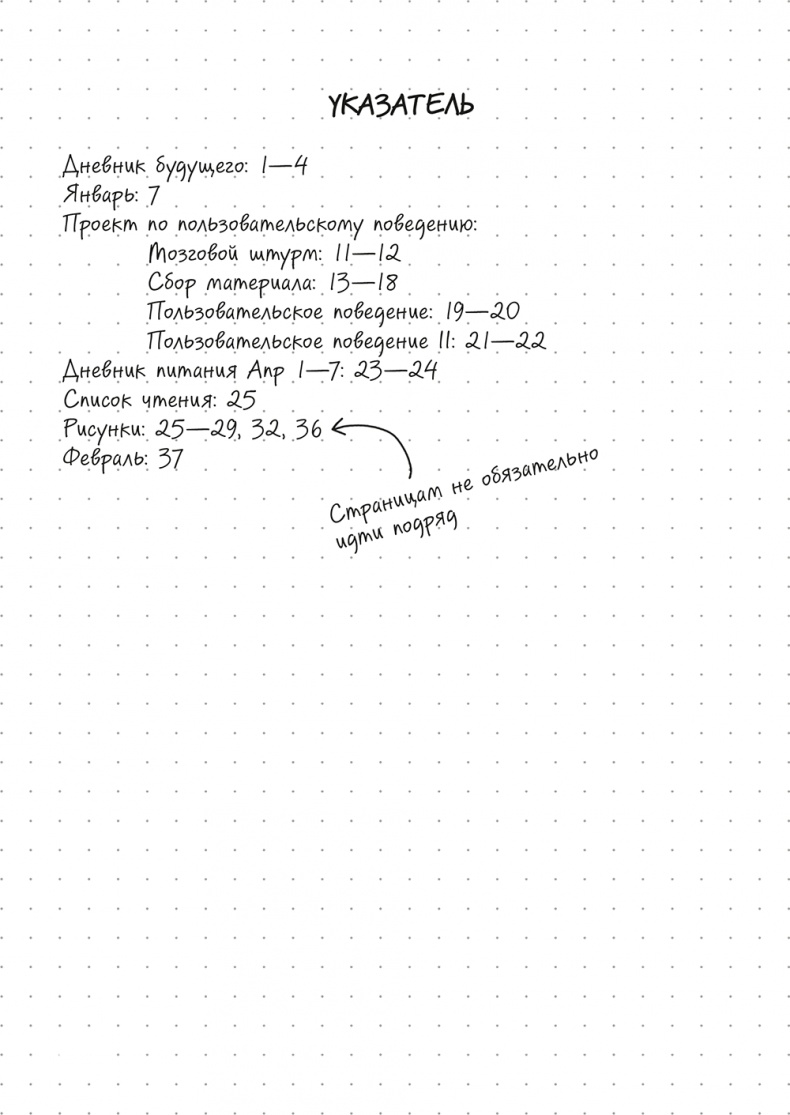 УКАЗАТЕЛЬ
Дневник будущего: 1—4
Январь: 7
Проект по пользовательскому поведению:
Мозговой штурм: 11—12
Сбор материала: 13—18
Пользовательское поведение: 19—20
Пользовательское поведение II: 21—22
Дневник питания Апр 1—7: 23—24
Список чтения: 25
Рисунки: 25—29, 32, 36
Февраль: 37
Страницам не обязательно
идти подряд